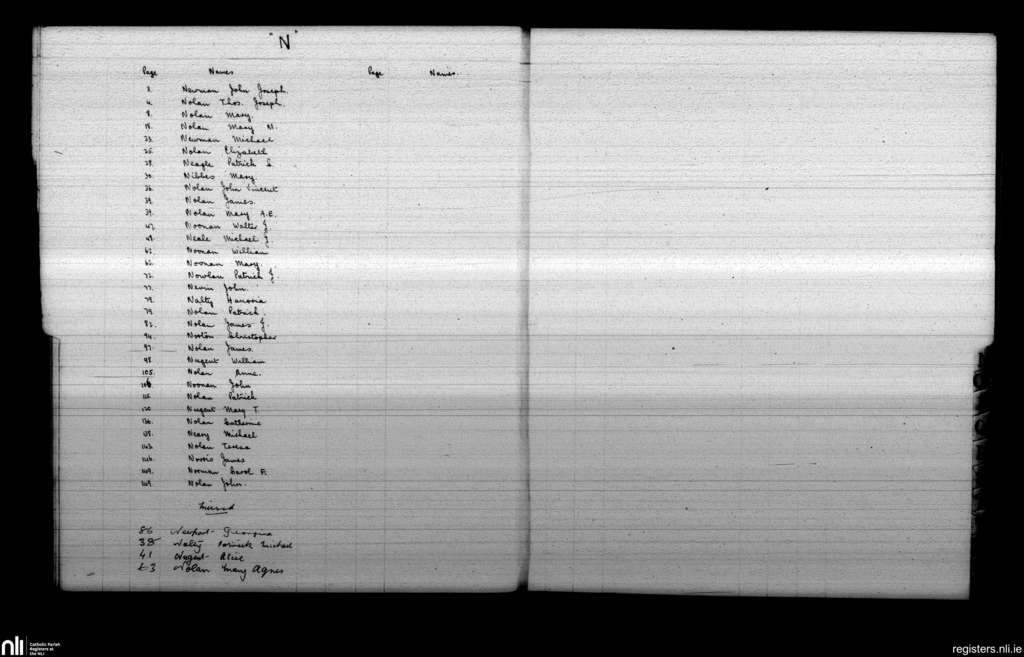 "N"
Page Names Page Names.
2. Newman John Joseph
4. Nolan Thos. Joseph.
8. Nolan Mary.
18. Nolan Mary M.
23. Newman Michael
25. Nolan Elizabeth
28. Neagle Patrick S.
30. Nibbes Mary
36. Nolan John Vincent
39. Nolan James.
39. Nolan Mary A.E.
47. Noonan Walter J.
49. Neale Michael J.
Noonan William
Noonan Mary.
72. Nowlan Patrick J.
77. Nevin John.
78. Nalty Hanoria
79. Nolan Patrick.
82. Nolan James J.
94. Norton Christopher
97. Nolan James.
98. Nugent William
105. Nolan Anne.
106. Noonan John
Nolan Patrick
130 Nugent Mary T.
136. Nolan Catherine
Neary Michael
143. Nolan Teresa
146. Norris James
149. Noonan Carol F.
149. Nolan John.
Missed
86 Newport Georgina
38 Nalty Patrick Michael
41 Nugent Alice
63 Nolan Mary Agnes
nli Catholic Parish Registers at the NLI
registers.nli.ie